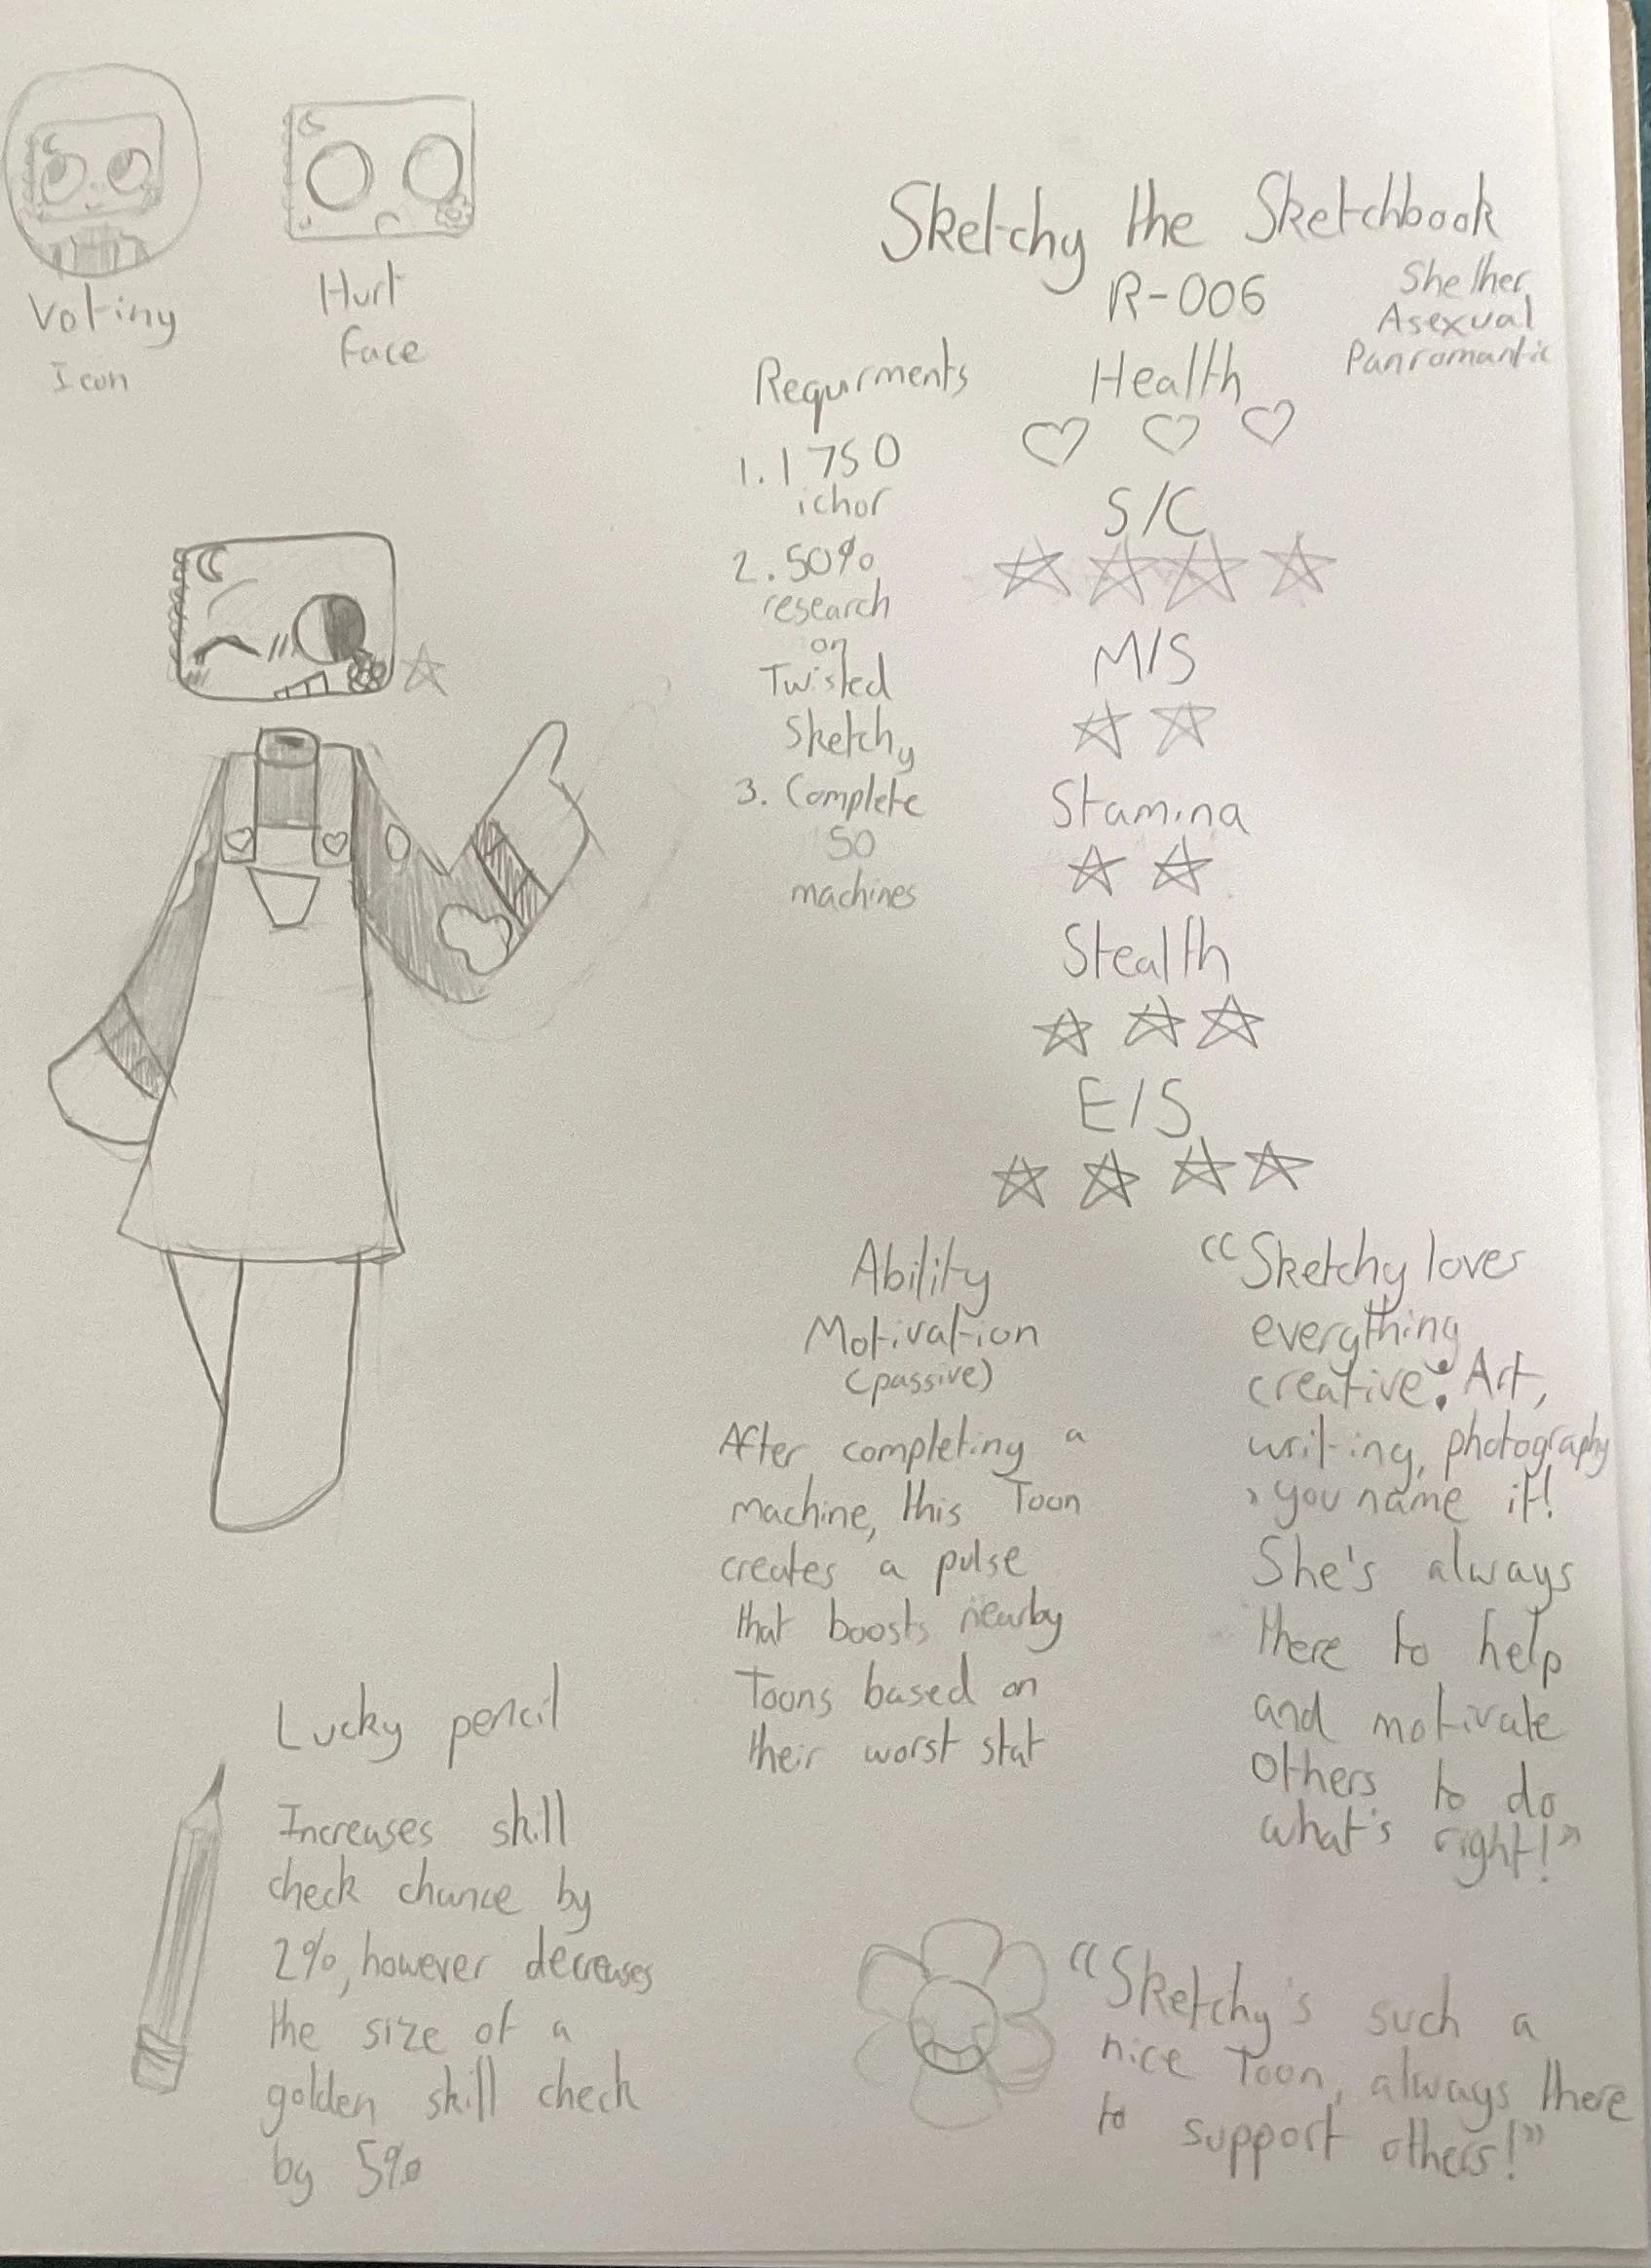 Voting
Icon
Hurt
face
Sketchy the Sketchbook
R-006
She/her
Asexual
Panromantic
Requrments
1. 1750
ichor
2. 50%
research
on
Twisted
Sketchy
3. Complete
50
machines
Health
S/C
M/S
Stamina
Stealth
E/S
Ability
Motivation
(passive)
After completing a
machine, this Toon
creates a pulse
that boosts nearby
Toons based on
their worst stat
"Sketchy loves
everything
creative: Art,
writing, photography
, you name it!
She's always
there to help
and motivate
others to do
what's right!"
Lucky pencil
Increases skill
check chance by
2%, however decreases
the size of a
golden skill check
by 5%
"Sketchy's such a
nice Toon, always there
to support others!"